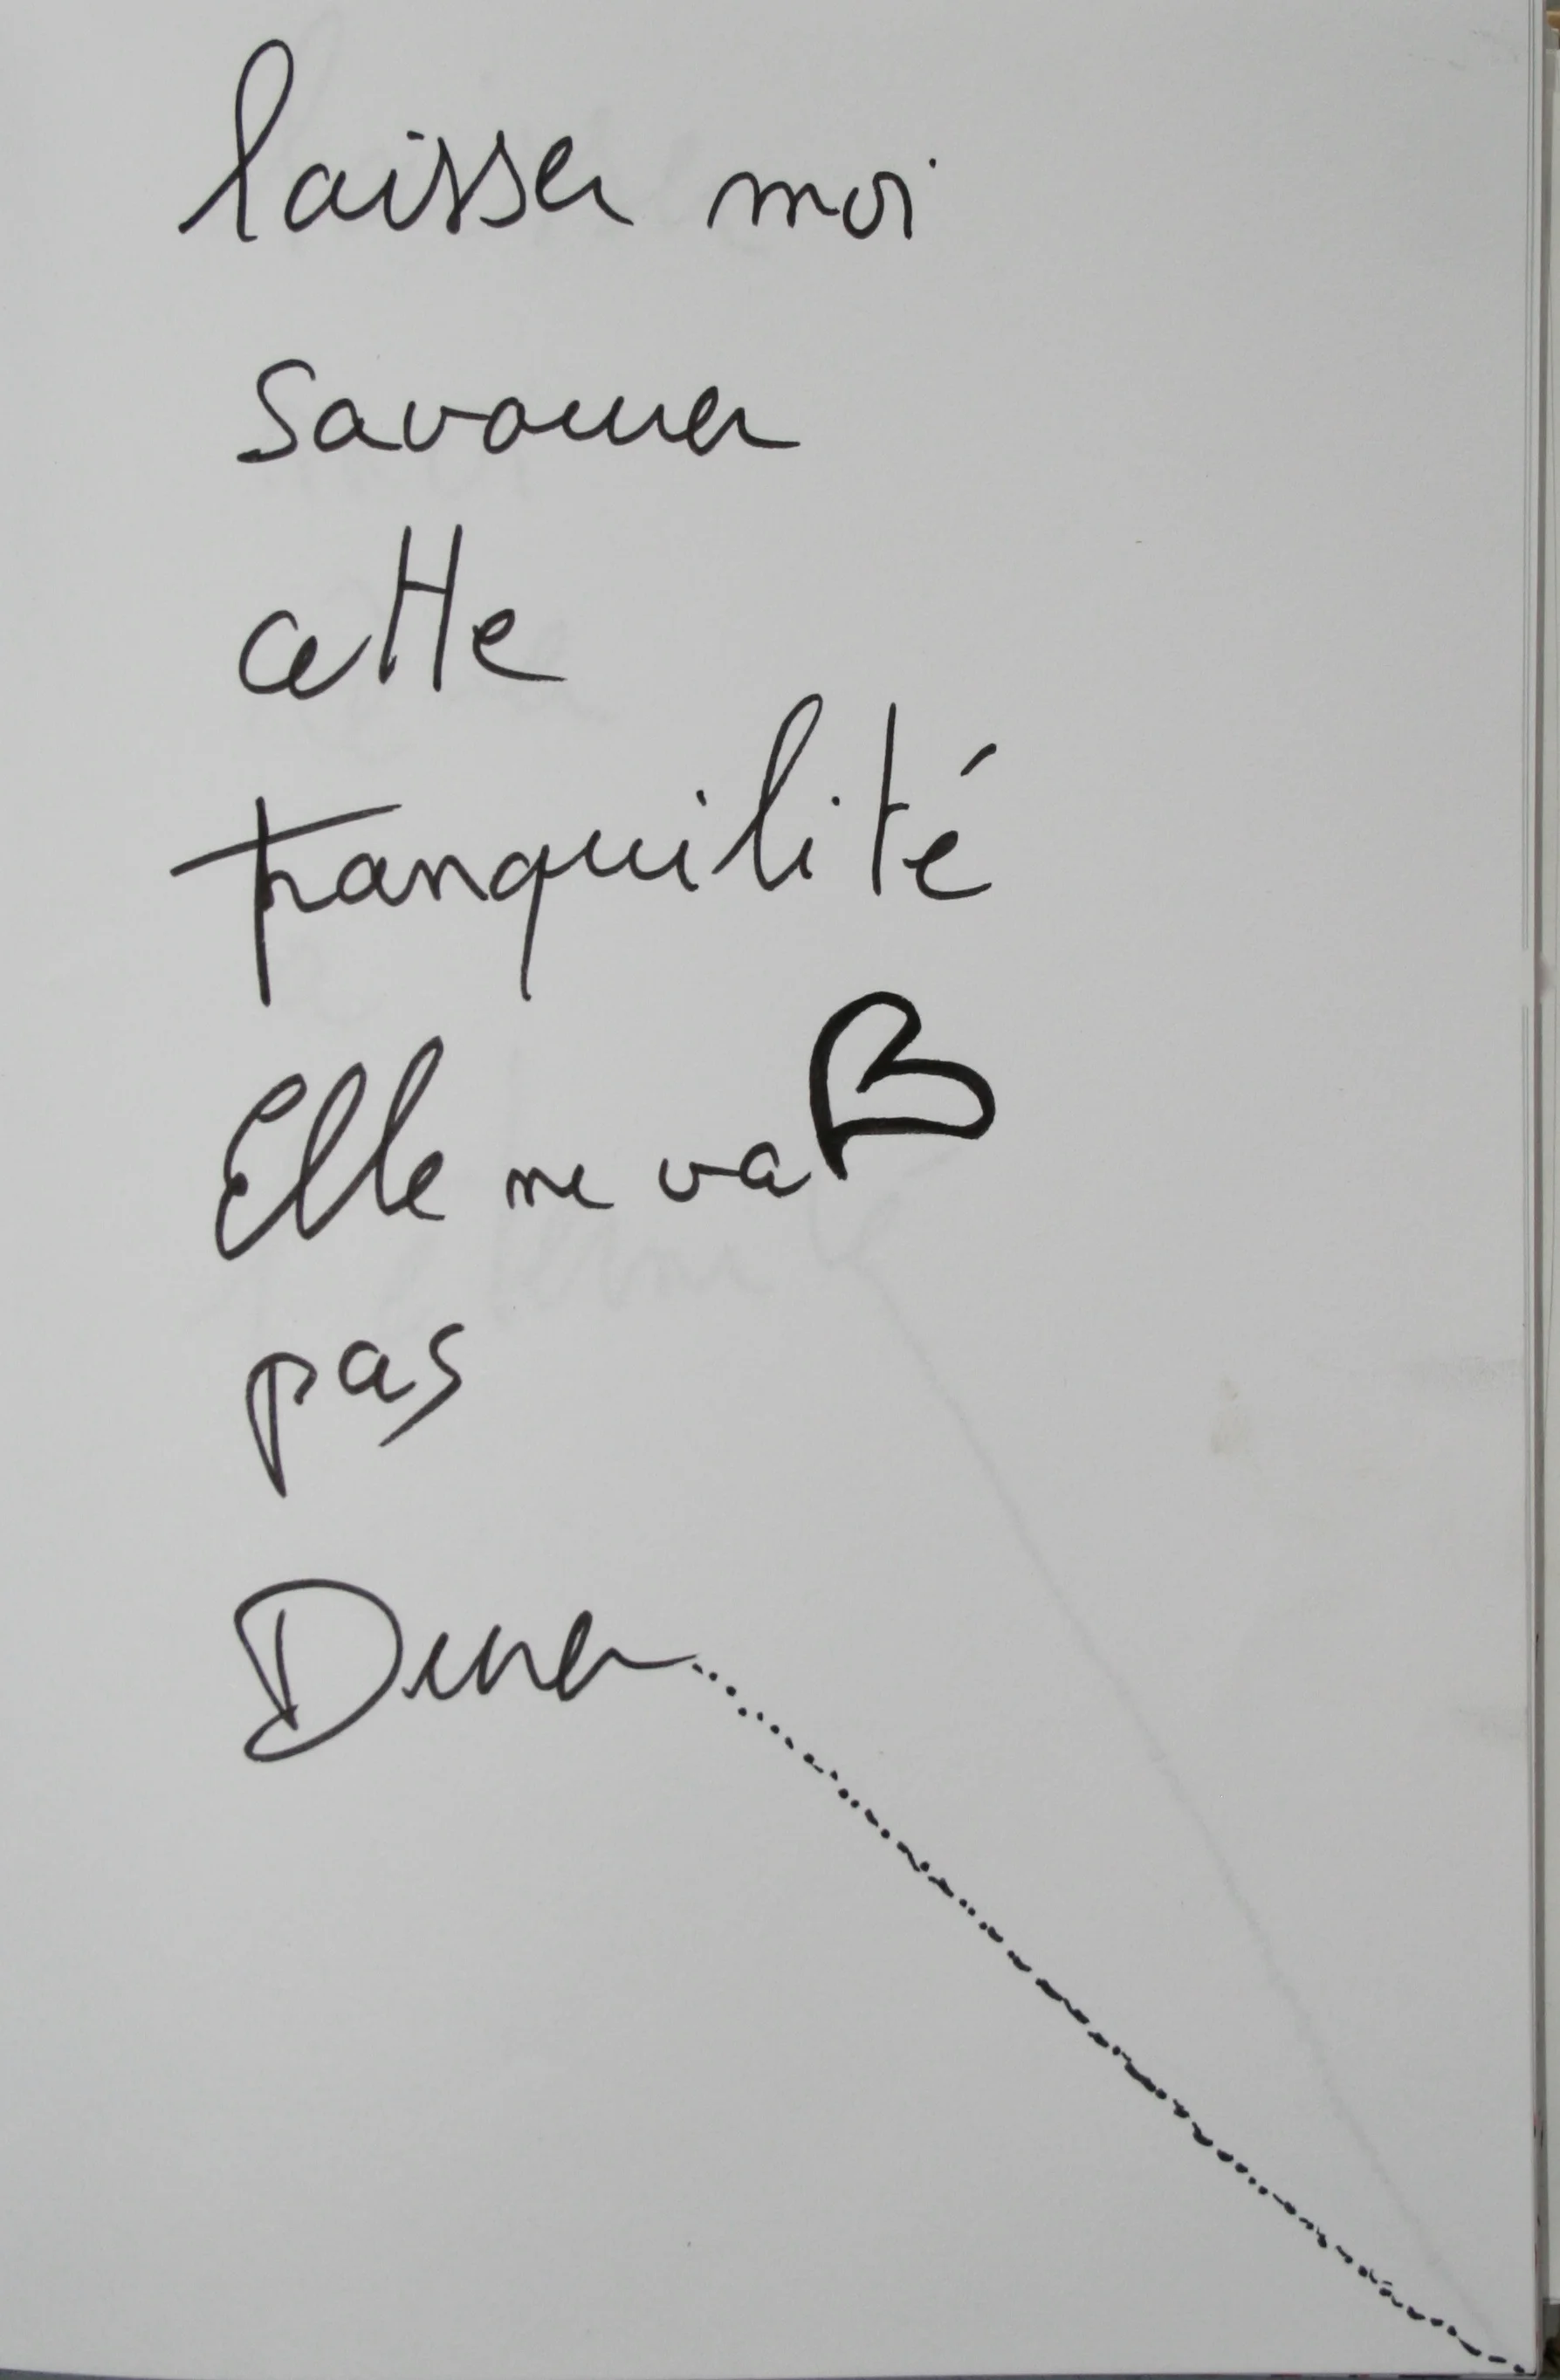 laisser moi
Savourer
cette
tranquilité
Elle ne va
pas
Durer